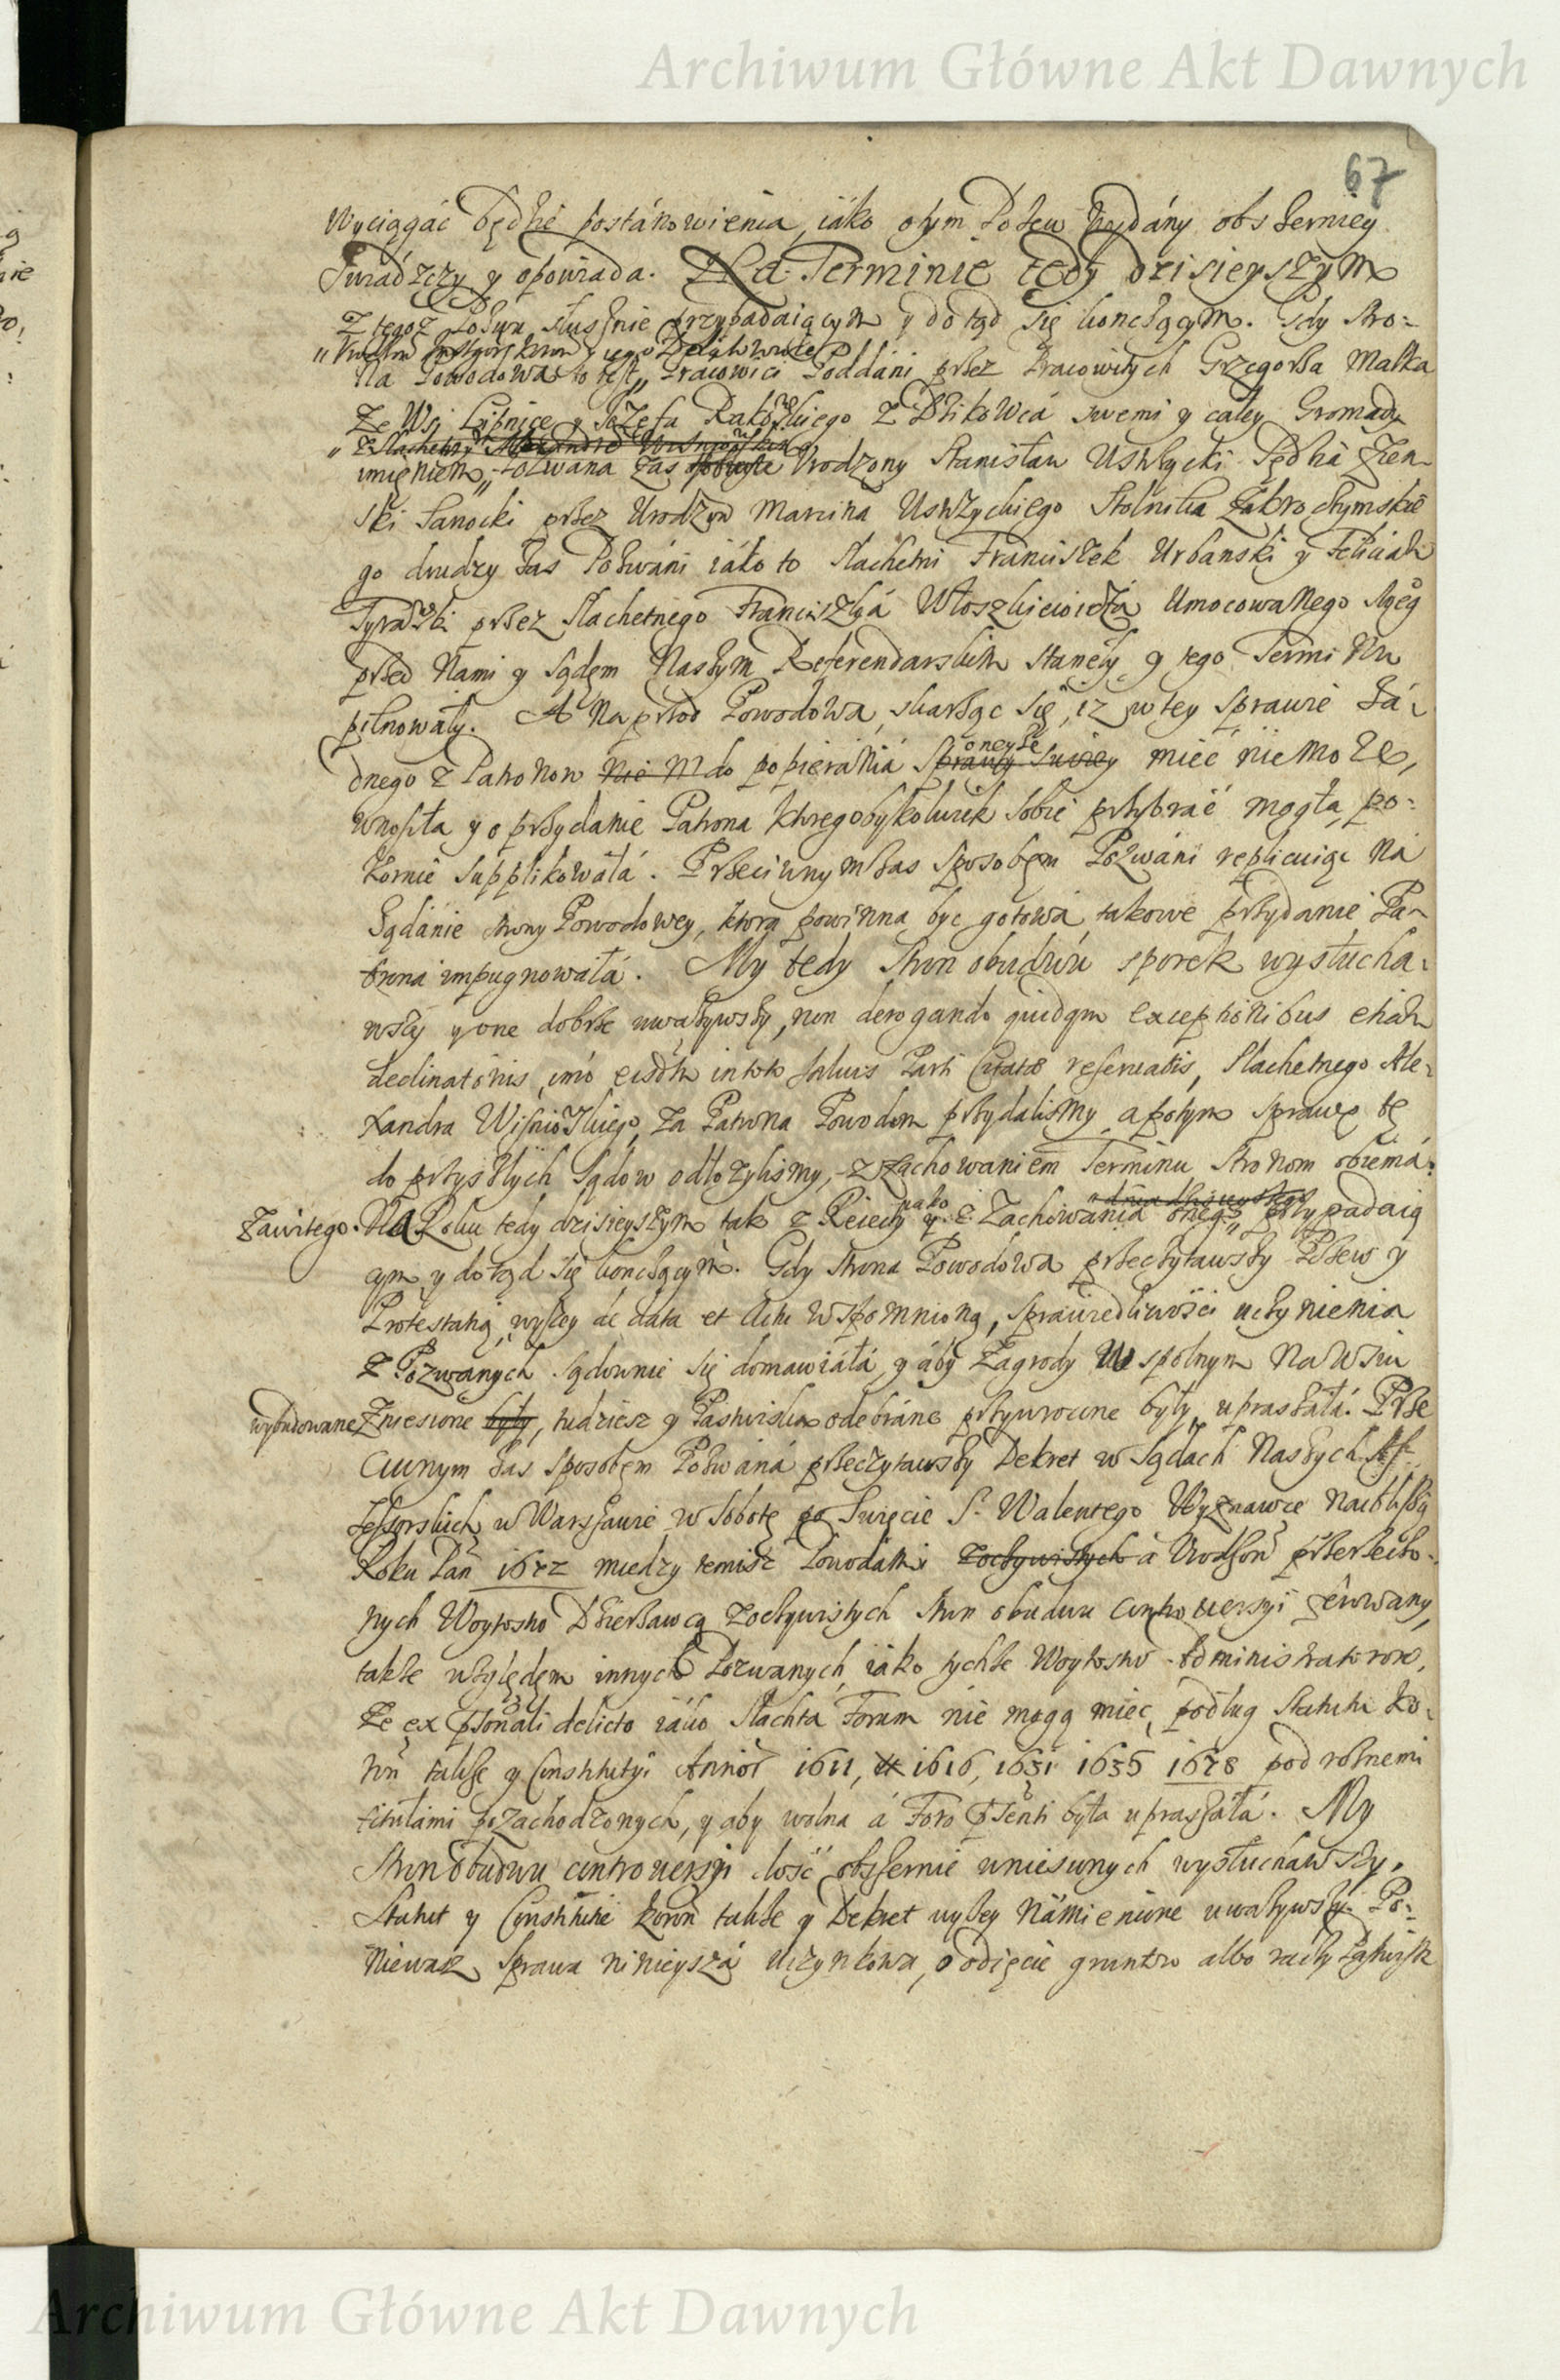 Archiwum Główne Akt Dawnych
67
Wyciągać będzie postánowienia, iáko otym Pozew wydány obszerniey
Swiádzczy y opowiada. Na Terminie tedy dzisieyszym
Z tegoz Pozwu słusznie przypadaiącym y dotąd się konczącym. Gdy Stro-
na Powodowa to iest Pracowici Poddáni przez Pracowitych Grzegorza Małka
Ze Wsi Lipnice y Iozefa Rakowskiego z Dzikowcá swemi y całey Gromady
imięniem, Pozwana zas Vrodzony Stanisław Ustrzycki Sędzia Ziem-
ski Sanocki przez Urodzon Marcina Ustrzyckiego Stolnika Zakroczymskie
go drudzy zas Pozwáni iáko to Slachetni Franciszek Urbanski y Felicián
Tyrawski przez Slachetnego Franciszká Włoszkiewicza Umocowanego swego
przed Nami y Sądęm Naszym Referendarskim stanęły y tego Terminu
pilnowały. A Naprzod Powodowa, skarząc się, iz w tey sprawie zá-
dnego z Patronow do popierániá oneyze mieć nie moze,
wnosiła y o przydanie Patrona ktoregobykolwiek sobie przybráć mogła, po-
kornie supplikowáłá. Przeciwnym zas sposobęm Pozwáni replicuiąc ná
Ządánie strony Powodowey, ktora powinna być gotowa, takowe przydanie Pa-
trona impugnowáłá. My tedy Stron obudwu sporek wysłucha-
wszy y one dobrze uwazywszy, non derogando quidqm exceptionibus etiam
declinatoriis, imo eisdm in toto salvis Parti Citatae reservatis, Slachetnego Ale-
xandra Wisniowskiego, za Patrona Powodom przydalismy, a potym sprawę tę
do przyszłych Sądow odłozylismy, z zachowaniem Terminu Stronom obiemá
Zawitego. Na Roku tedy dzisieyszym tak z Reiecty iako y z Zachowania onego przypadaią
cym y dotąd się konczącym. Gdy Strona Powodowa przeczytawszy Pozew y
Protestatią wyzey de data et Actu wspomnioną, sprawiedliwości uczynienia
z Pozwanych sądownie się domawiáłá, y áby Zagrody w spolnym Nawsiu
wybudowane Zniesione były, tudziesz y Pastwiska odebráne przywrocone były, upraszáłá. Prze
ciwnym zas sposobęm Pozwáná przeczytawszy Dekret w Sądach Naszych Ass-
sesorskich w Warszawie w Sobotę po Święcie S. Walentego Wyznawce naiblizszą
Roku Pań 1672 miedzy temisz Powodami á Urodzon przerzeczo-
nych Woytostw Dzierzawcą Zoczywistych stron obudwu controversyi ferowany,
takze względęm innych Pozwanych, iáko tychze Woytostw Administratorow,
Ze ex psonali delicto iáko Slachta Forum nie mogą miec, podług Statutu Ko-
ron takze y Constitutyi Annor 1611, 1616, 1631 1635 1678 pod roznemi
titułami zachodzonych, y aby wolna á Foro psenti była upraszáłá. My
Stron obudwu controversyi dość obszernie wniesionych wysłuchawszy,
Statut y Constitutie Koron takze y Dekret wyzey námienione uwazywszy. Po-
niewasz Sprawa ninieyszá uczynkowa, o odięcie gruntow albo raczy Pastwisk
Archiwum Główne Akt Dawnych